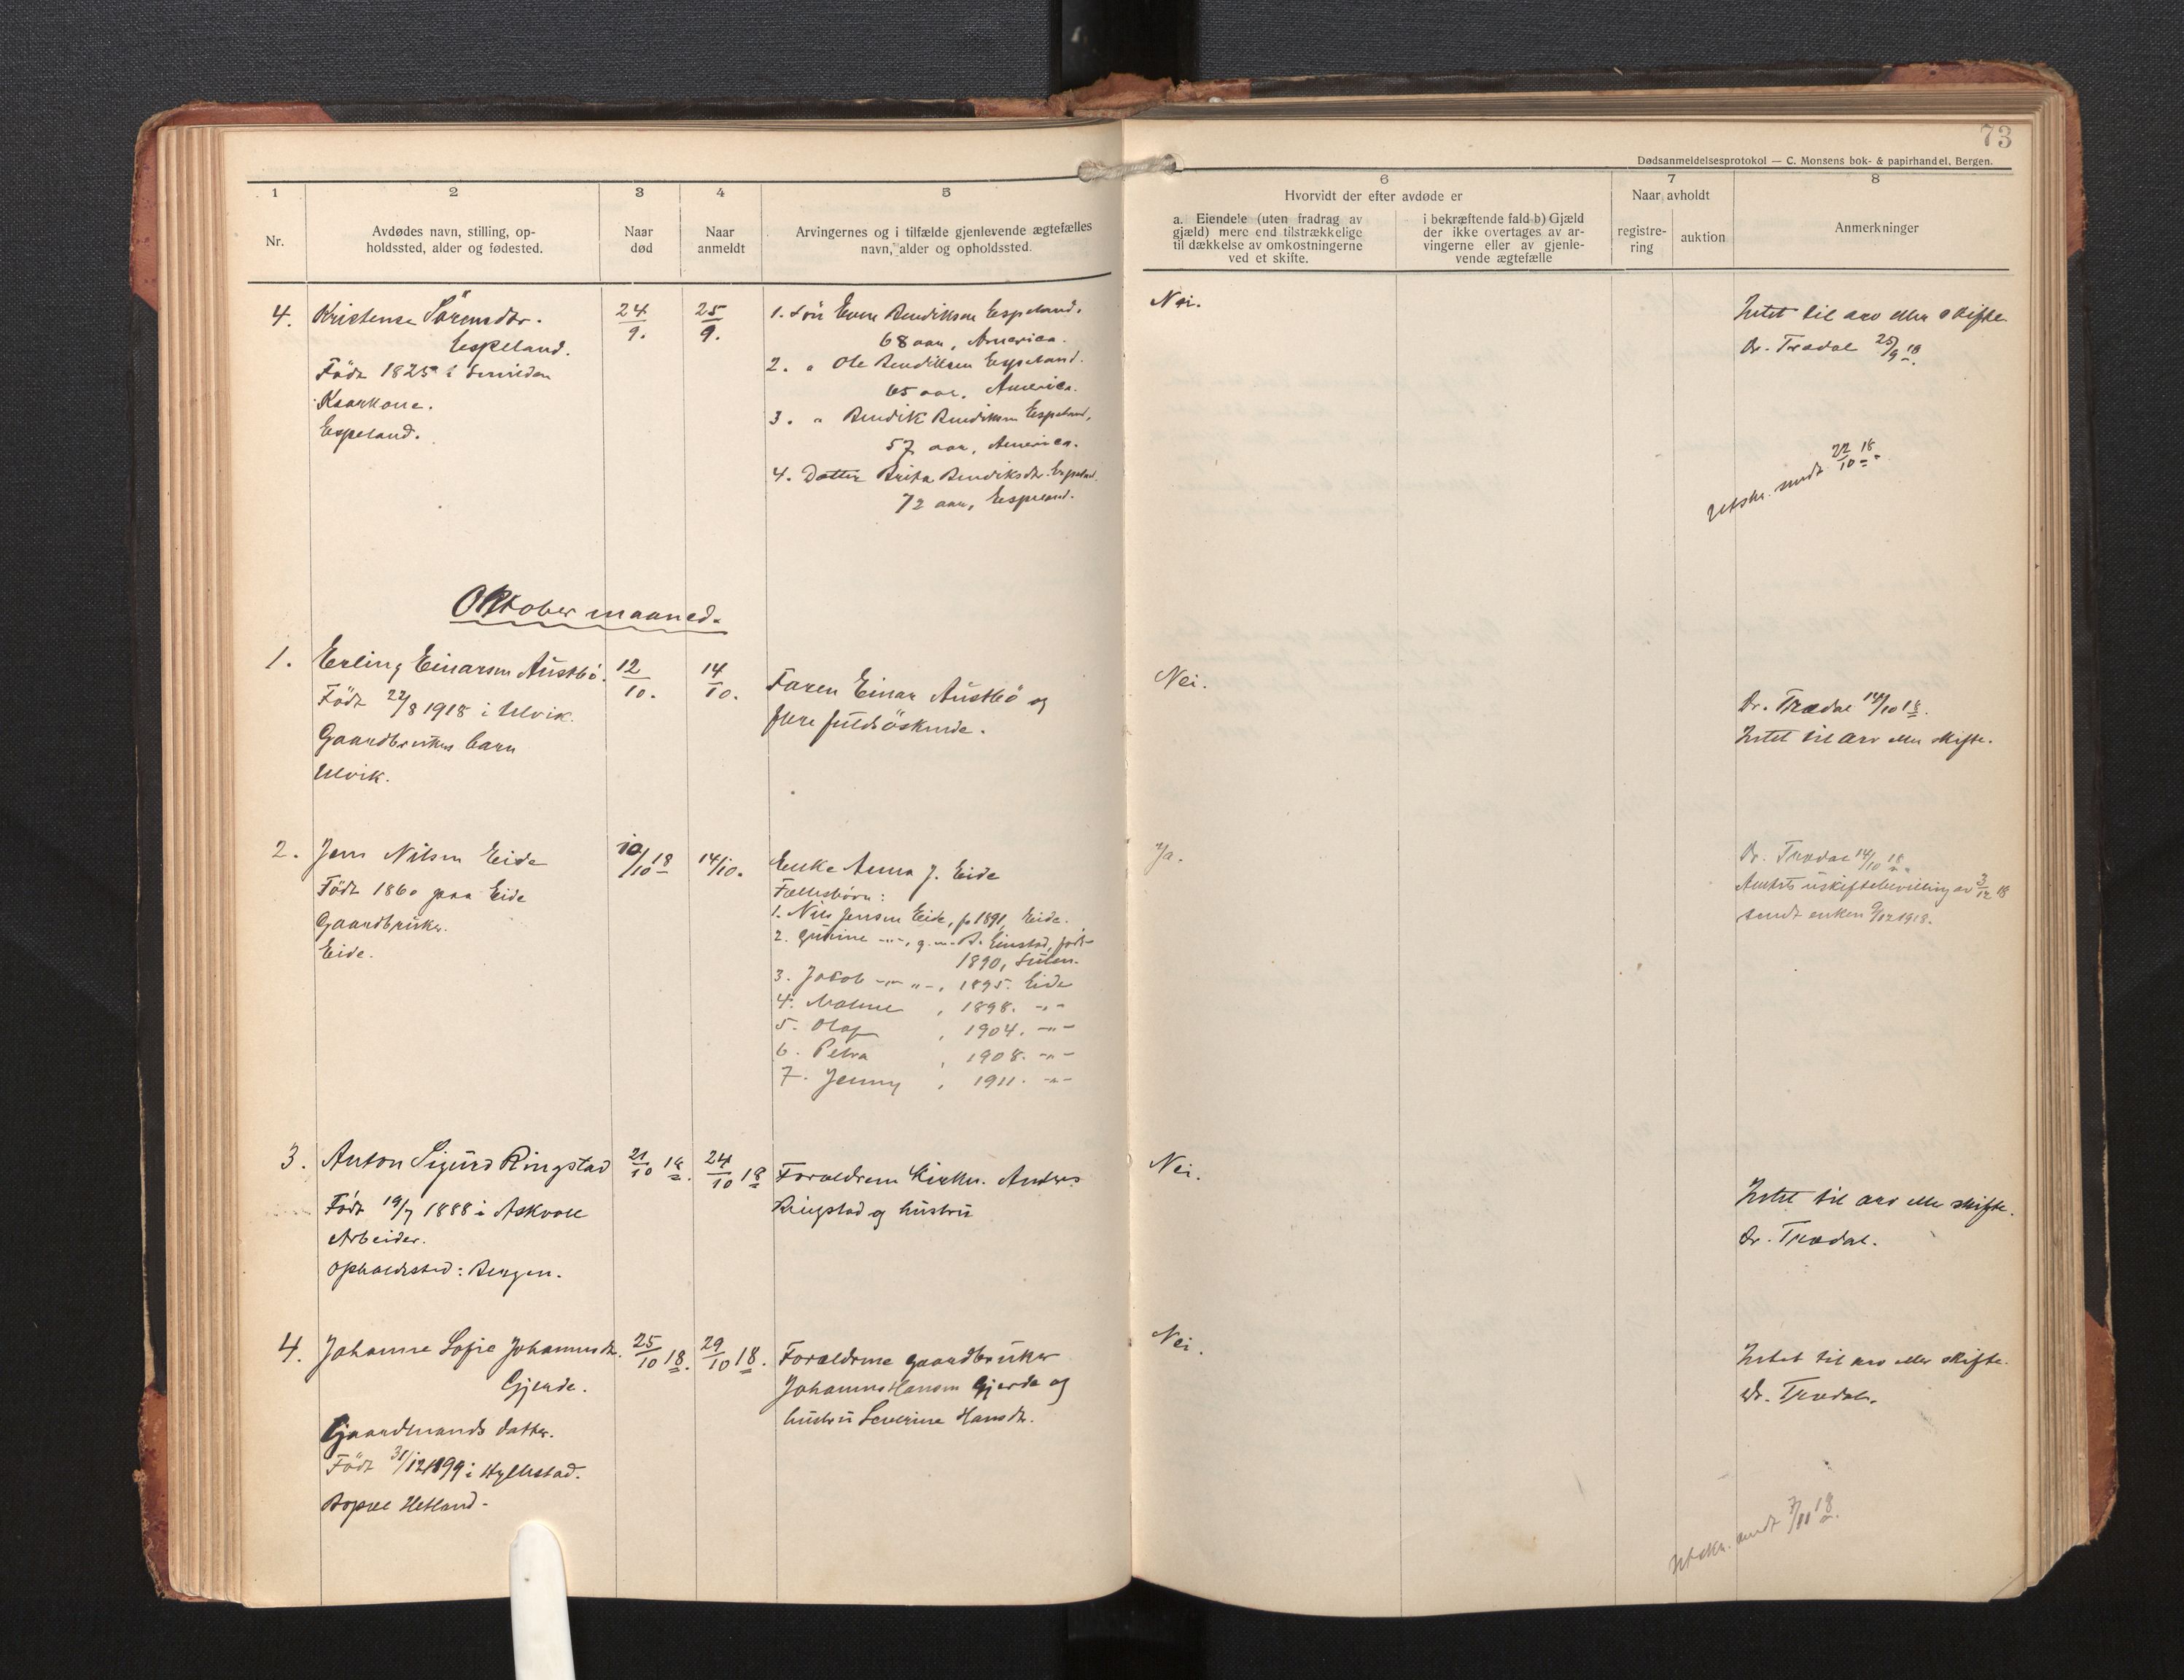 73
Dødsanmeldelsesprotokol — C. Monsens bok- & papirhandel, Bergen.
1 2 3 4 5 6 7 8
Nr.
Avdødes navn, stilling, op-
holdssted, alder og fødested.
Naar
død
Naar
anmeldt
Arvingernes og i tilfælde gjenlevende ægtefælles
navn, alder og opholdssted.
Hvorvidt der efter avdøde er
a. Eiendele (uten fradrag av
gjæld) mere end tilstrækkelige
til dækkelse av omkostningerne
ved et skifte.
i bekræftende fald b) Gjæld
der ikke overtages av ar-
vingerne eller av gjenle-
vende ægtefælle
Naar avholdt
registre-
ring
auktion
Anmerkninger
4. Kristense Sörensdtr.
Espeland.
Födt 1825 i
Kaarkone.
Espeland.
24/9.
25/9.
1. Sön Bendiksen Espeland.
68 aar, America.
2. " Ole Bendiksen Espeland.
65 aar, America.
3. " Bendik Bendiksen Espeland,
57 aar, America.
4. Datter Brita Bendiksdtr. Espeland.
72 aar, Espeland.
Nei.
Intet til arv eller skifte
Dr. Trædal 25/9 18.
Utskr. sendt 22/10 18
Oktober maaned.
1. Erling Einarsen Austbö.
Födt 22/8 1918 i Ulvik.
Gaardbrukers barn
Ulvik.
12/10.
14/10.
Faren Einar Austbö og
flere fuldsöskende.
Nei.
Dr. Trædal 14/10 18.
Intet til arv eller skifte.
2. Jens Nilsen Eide
Födt 1860 paa Eide
Gaardbruker.
Eide.
10/10 18
14/10.
Enke Anna J. Eide
Fællesbörn:
1. Nils Jensen Eide, f. 1891, Eide.
2. -"-, g. m. B. födt
1890, Sulen.
3. Jakob -"- "-, 1895. Eide
4. , 1898. -"-
5. Olaf , 1904. -"-
6. Petra , 1908. -"-
7. Jenny , 1911. -"-
Ja.
Dr. Trædal 14/10 18.
Amtets uskiftebevilling av 3/12 18
sendt enken 9/12 1918.
3. Anton Sigurd Ringstad
Födt 19/7 1888 i Askvoll
Arbeider.
Opholdssted: Bergen.
21/10 18.
24/10 18
Forældrene Kirkes. Anders
Ringstad og hustru
Nei.
Intet til arv eller skifte.
Dr. Trædal.
4. Johanne Sofie Johannesdtr.
Gjerde.
Gaardmands datter.
Födt 31/12 1899 i Hyllestad.
Bopæl Hetland.
25/10 18.
29/10 18.
Forældrene gaardbruker
Johannes Hansen Gjerde og
hustru Severine Hansdtr.
Nei.
Intet til arv eller skifte.
Dr. Trædal.
Utskr. sendt 7/11 18.